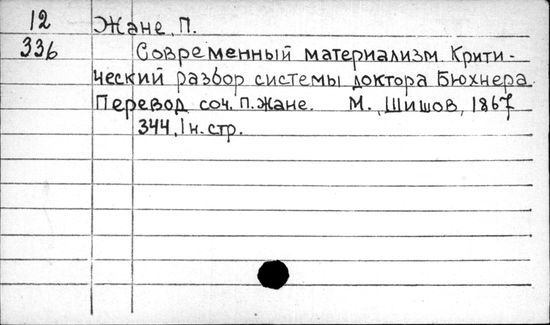 12
336
Жане, П.
Современный материализм. Крити-
ческий разбор системы доктора Бюхнера.
Перевод соч. П. Жане. М., Шишов, 1867
344, 1 н. стр.